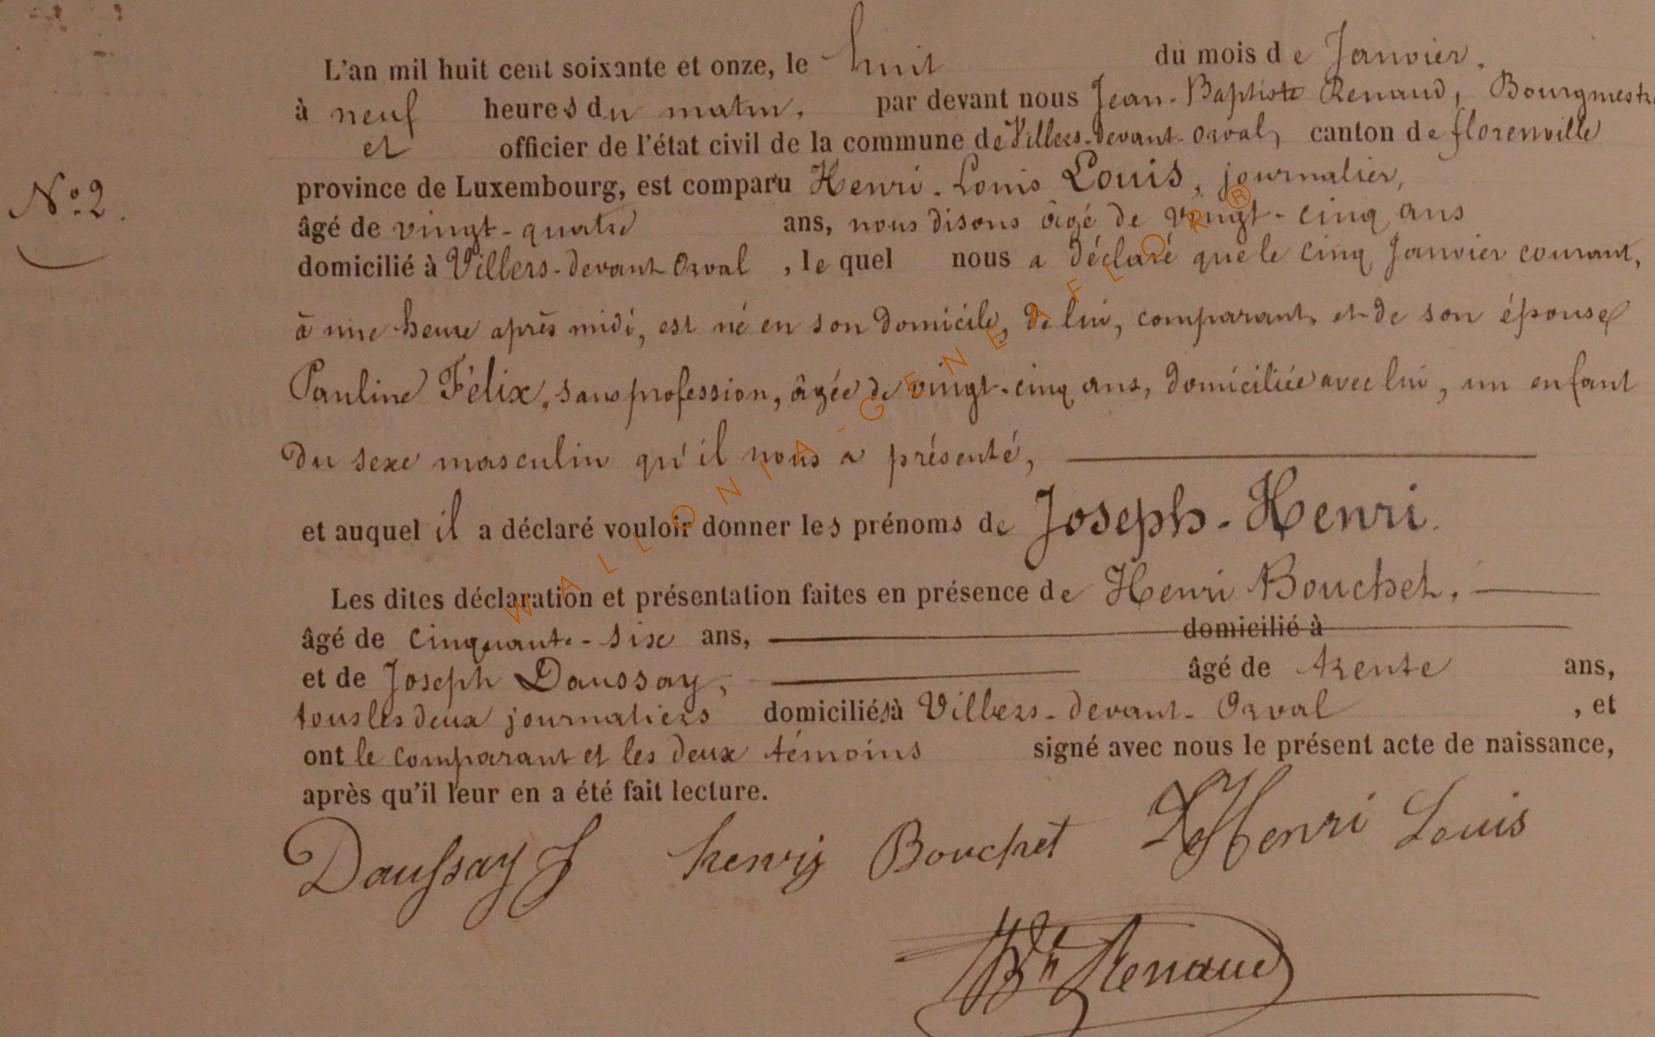 L'an mil huit cent soixante et onze, le huit du mois de Janvier.
à neuf heures du matin, par devant nous Jean-Baptiste Renaud, Bourgmestre
et officier de l'état civil de la commune de Villers-devant-Orval, canton de florenville
N° 2.
province de Luxembourg, est comparu Henri-Louis Louis, journalier,
âgé de vingt-quatre ans, nous disons âgé de vingt-cinq ans
domicilié à Villers-devant Orval, lequel nous a déclaré que le cinq Janvier courant,
à une heure après midi, est né en son domicile, de lui, comparant, et de son épouse
Pauline Félix, sans profession, âgée de vingt-cinq ans, domiciliée avec lui, un enfant
du sexe masculin qu'il nous a présenté,
et auquel il a déclaré vouloir donner les prénoms de Joseph-Henri.
Les dites déclaration et présentation faites en présence de Henri Bouchet.
âgé de cinquante-six ans, domicilié à
et de Joseph Daussay, âgé de trente ans,
tous les deux journaliers domiciliés à Villers-devant-Orval, et
ont le comparant et les deux témoins signé avec nous le présent acte de naissance,
après qu'il leur en a été fait lecture.
Daussay J henry Bouchet Henri Louis
Renaud
WALLONIA-GENEAFLOR®